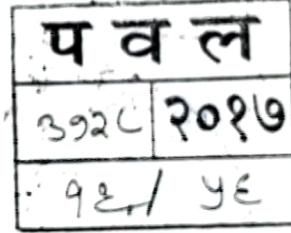 प व ल
३१२८ २०१७
१६/ ५६